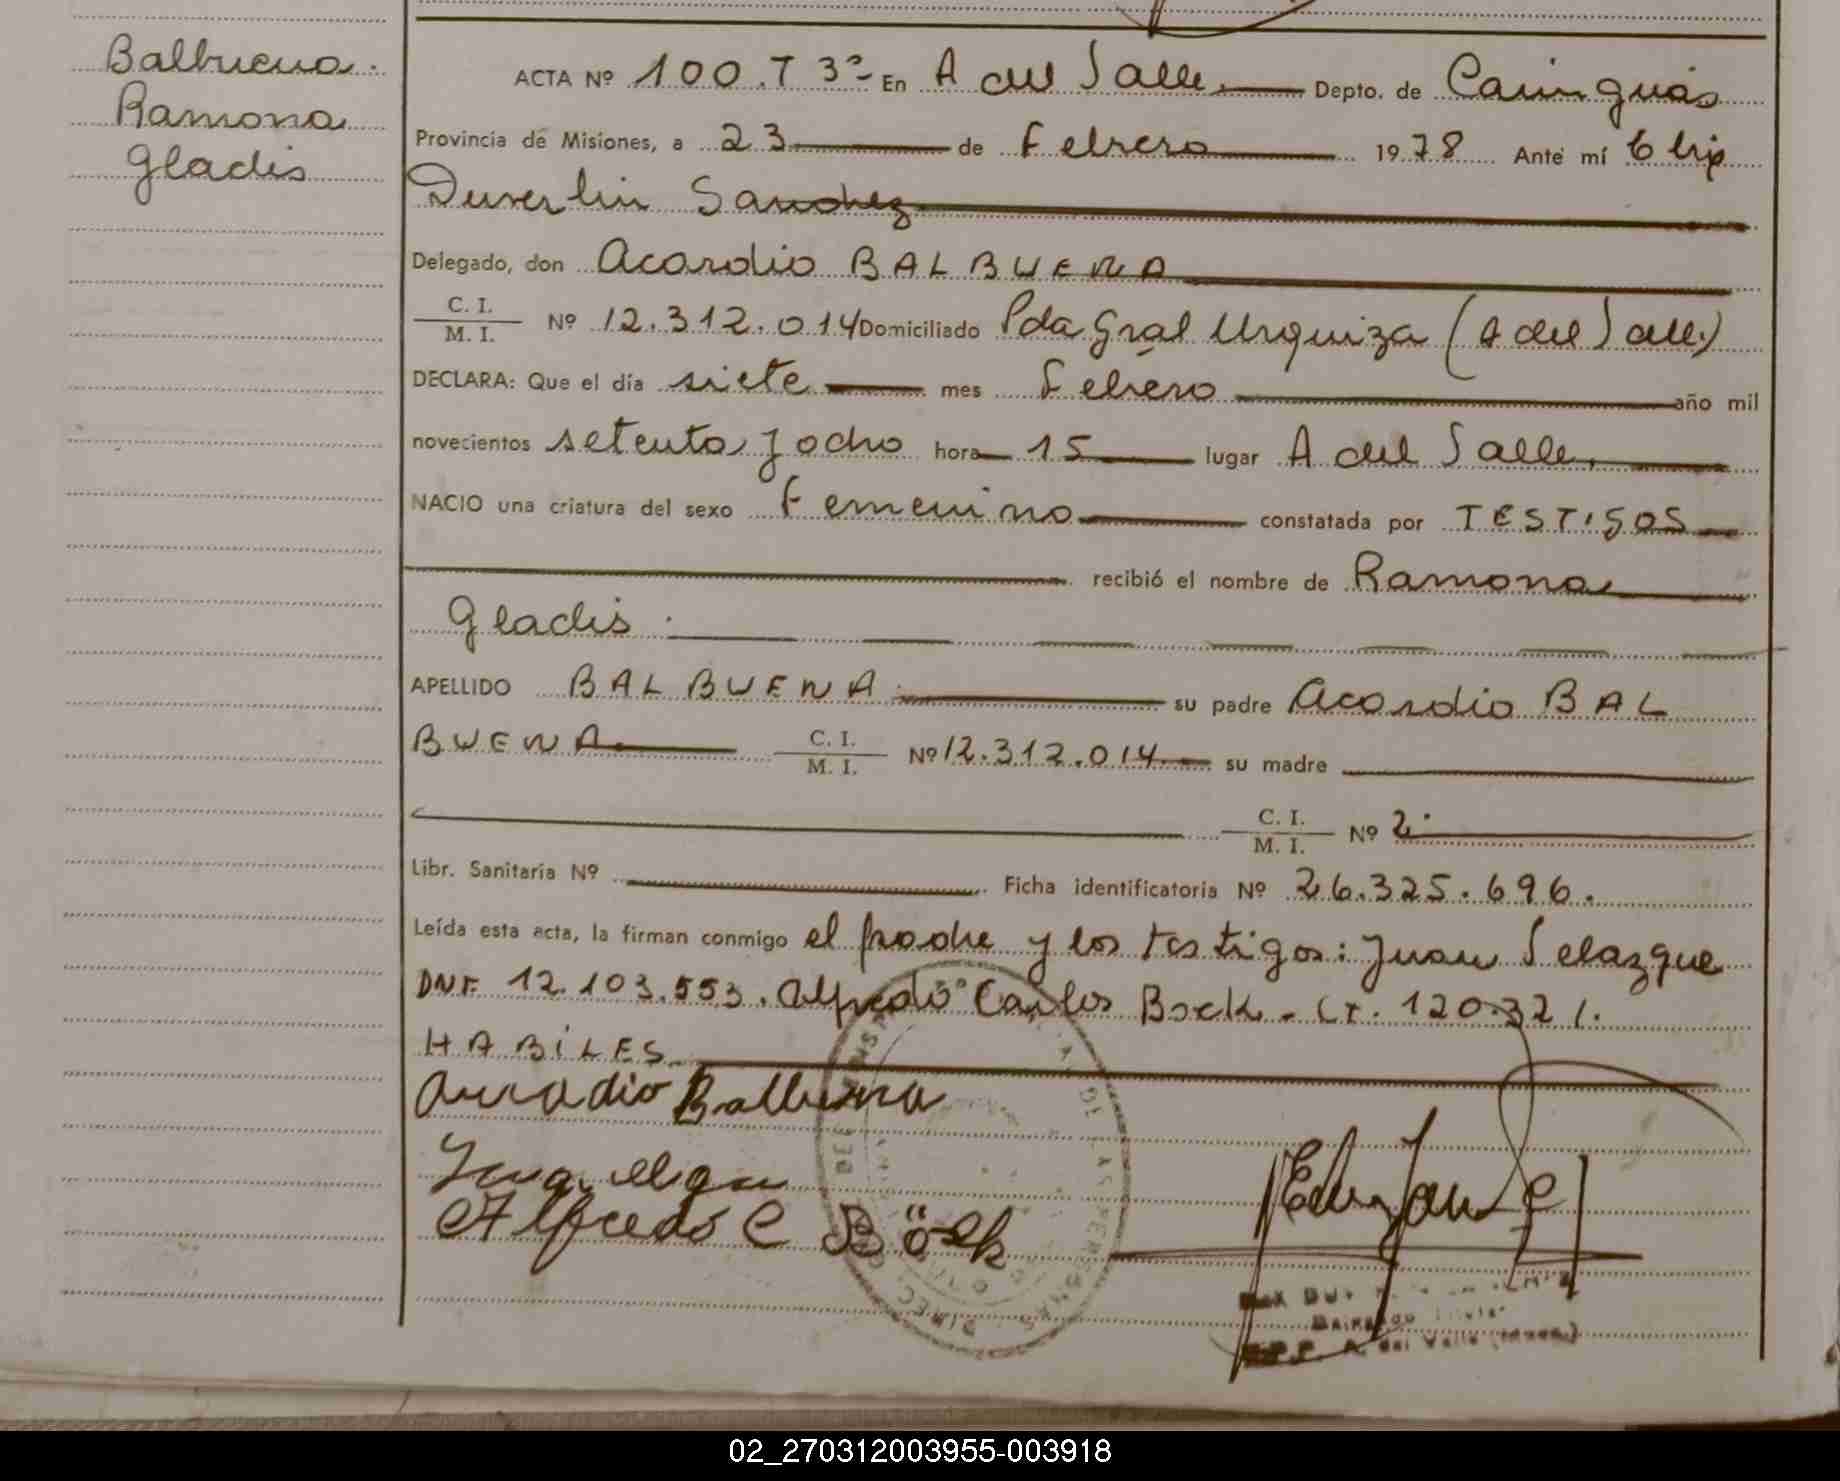 Balbuena.
Ramona
Gladis
ACTA Nº 100.T 3º En A del Valle. Depto. de Cainguás
Provincia de Misiones, a 23 de Febrero 1978 Ante mí
Duverlin Sanchez
Delegado, don Acardio BALBUENA
C. I.
M. I. Nº 12.312.014 Domiciliado Pda Gral Urquiza (A del Valle)
DECLARA: Que el día siete mes Febrero año mil
novecientos setenta y ocho hora 15 lugar A del Valle.
NACIO una criatura del sexo Femenino constatada por TESTIGOS
recibió el nombre de Ramona
Gladis.
APELLIDO BALBUENA su padre Acardio BAL
BUENA C. I. M. I. Nº 12.312.014 su madre
C. I. M. I. Nº
Libr. Sanitaria Nº Ficha identificatoria Nº 26.325.696.
Leída esta acta, la firman conmigo el padre y los testigos: Juan Velazque
DNI. 12.103.553. Alfredo Carlos Bock - CI. 120.321.
HABILES
Arcadio Balbuena
Alfredo C Böck
A. del Valle
02_270312003955-003918